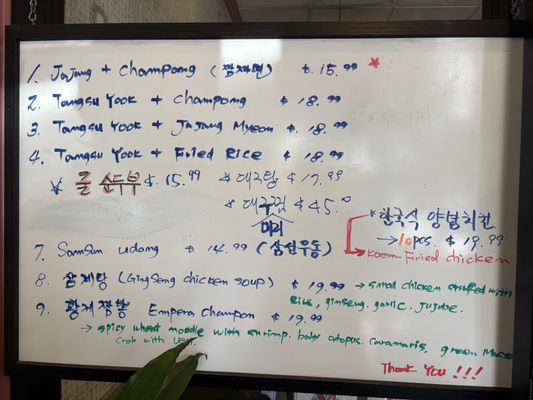 1. Jajang + Champong (짬짜면) $.15.99 *
2. Tangsu Yook + Champong $.18.99
3. Tangsu Yook + Jajang Myeon $.18.99
4. Tangsu Yook + Fried Rice $.18.99
* 굴 순두부 $.15.99 * 대구탕 $17.99
* 대구찜 $45.00
머리
* 한국식 양념치킨
→ 10pcs. $19.99
Korean Fried chicken
7. Samsun udong $14.99 (삼선우동)
8. 삼계탕 (GingSeng chicken soup) $19.99 → small chicken stuffed with
Rice, ginseng. garlic. Jujube.
9. 황제짬뽕 Empera Champon $19.99
→ spicy wheat noodle with shrimp. baby octopus. caramaris, green
crab with
Thank You !!!